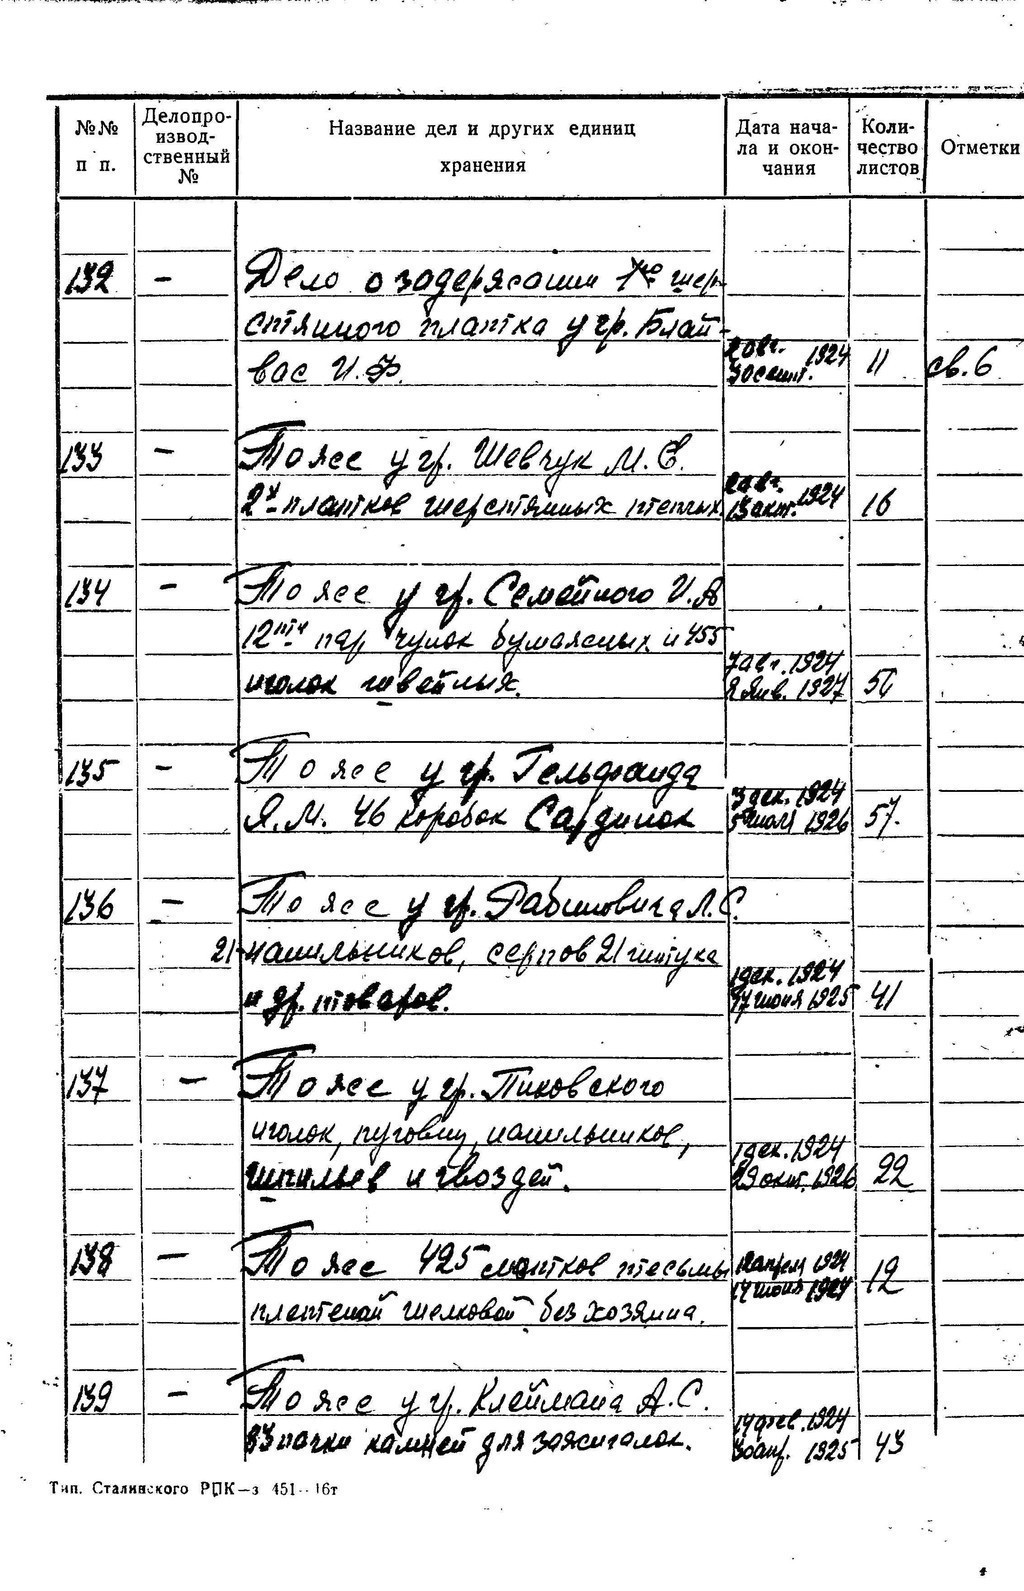 №№ п п.
Делопроизводственный №
Название дел и других единиц хранения
Дата начала и окончания
Количество листов
Отметки
132 — Дело о задержании 1го шер-
стянного платка у гр. Блай-
вас И.Ф. 2 авг. 30 сент. 1924 11 св. 6
133 — То же у гр. Шевчук М.Е.
2х платков шерстянных теплых. 2 авг. 13 окт. 1924 16
134 — То же у гр. Семейного И.А
12ти пар чулок бумажных и 455
иголок швейных. 7 авг. 1924 2 янв. 1927
135 — То же у гр. Гельфанда
Я.М. 46 коробок Сардинок 3 дек. 1924 5 июля 1926 57.
136 — То же у гр. Рабиновича Л.С.
21 напильников, серпов 21 штука
и др. товаров. 1 дек. 1924 17 июня 1925 41
137 — То же у гр. Пиковского
иголок, пуговиц, напильников,
шпильев и гвоздей. 1 дек. 1924 29 окт. 1926 22
138 — То же 425 мотков тесьмы 12 апрель 1924 14 июня 1924 12
плетеной шелковой без хозяина.
139 — То же у гр. Клеймана А.С.
33 пачки камней для зажигалок. 14 фев. 1924 30 апр. 1925 43
Тип. Сталинского РПК—з 451--16т